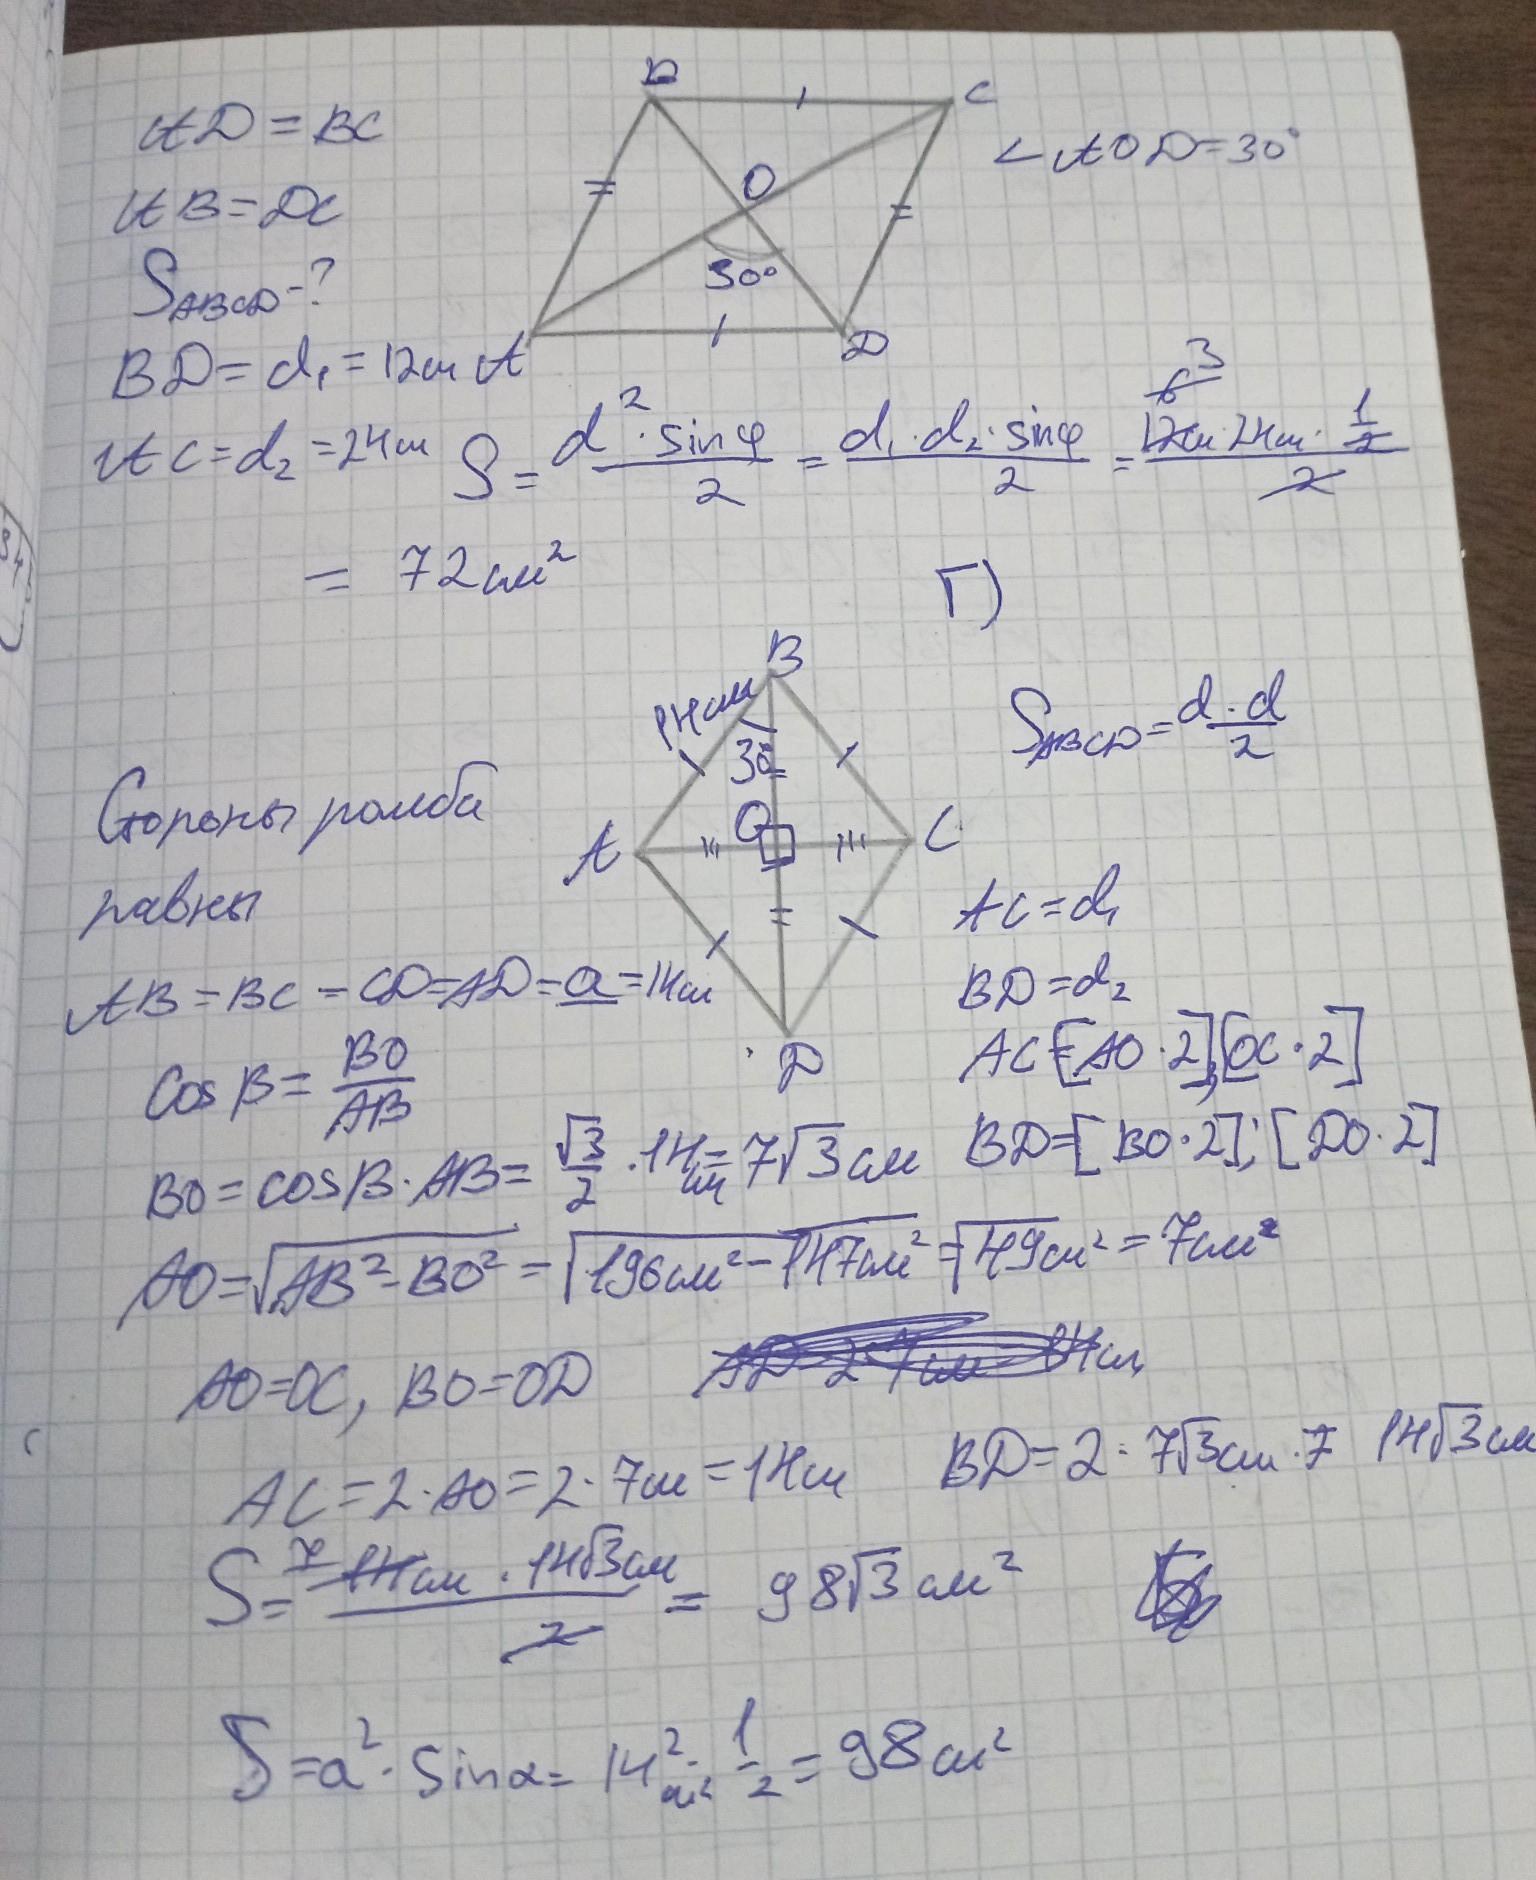 AD = BC
B C
∠AOD=30°
AB=DC
O
S_ABCD-?
30°
A D
BD= d₁=12см
AC=d₂=24см S= d²·sinφ/2 = d₁·d₂·sinφ/2 = 12см·24см·1/2/2
6 3
= 72см²
Г)
B
14см
30°
S_ABCD= d·d/2
Стороны ромба
равны
A O C
D
AC=d₁
BD=d₂
AB=BC=CD=AD=a=14см
AC=[AO·2];[OC·2]
cos B= BO/AB
BD=[BO·2];[DO·2]
BO=cosB·AB= √3/2 ·14см=7√3см
AO=√AB²-BO²=√196см²-147см²=√49см²=7см
AO=OC, BO=OD
AC=2·AO=2·7см=14см BD=2·7√3см= 14√3см
S= 14см·14√3см/2 = 98√3см²
7
S=a²·sinα= 14²см²·1/2=98см²